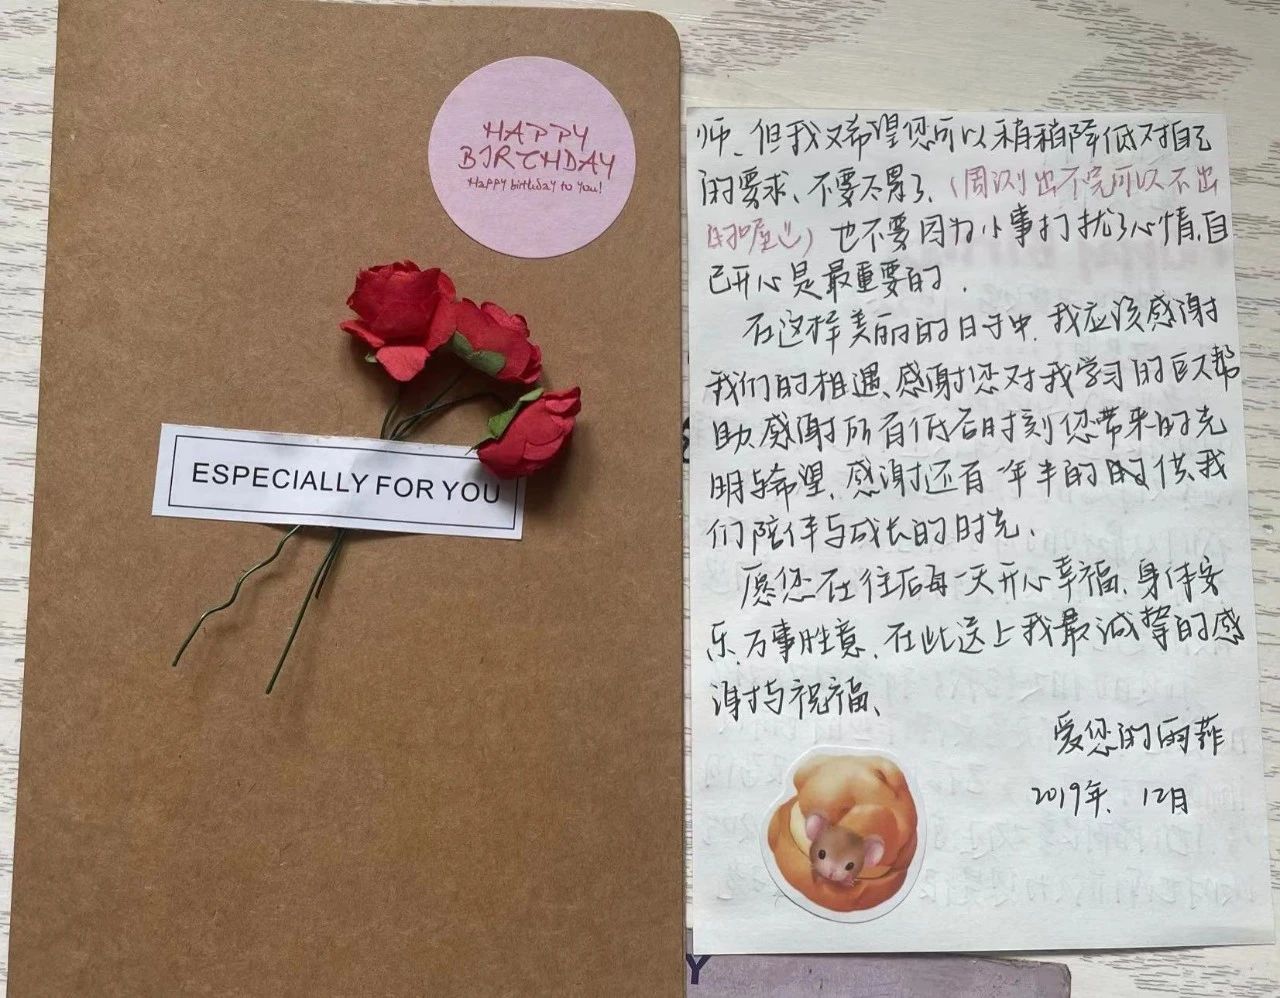 HAPPY
BIRTHDAY
Happy birthday to you!
ESPECIALLY FOR YOU
师、但我又希望您可以稍稍降低对自己
的要求、不要太累了、(周测出不完可以不出
的喔) 也不要因为小事打扰了心情,自
己开心是最重要的.
在这样美丽的日子中.我应该感谢
我们的相遇、感谢您对我学习的巨大帮
助、感谢所有低谷时刻您带来的光
明与希望、感谢还有一年半的时供我
们陪伴与成长的时光.
愿您在往后每一天开心幸福、身体安
乐、万事胜意、在此送上我最诚挚的感
谢与祝福、
爱您的雨菲
2019年、12月
Y